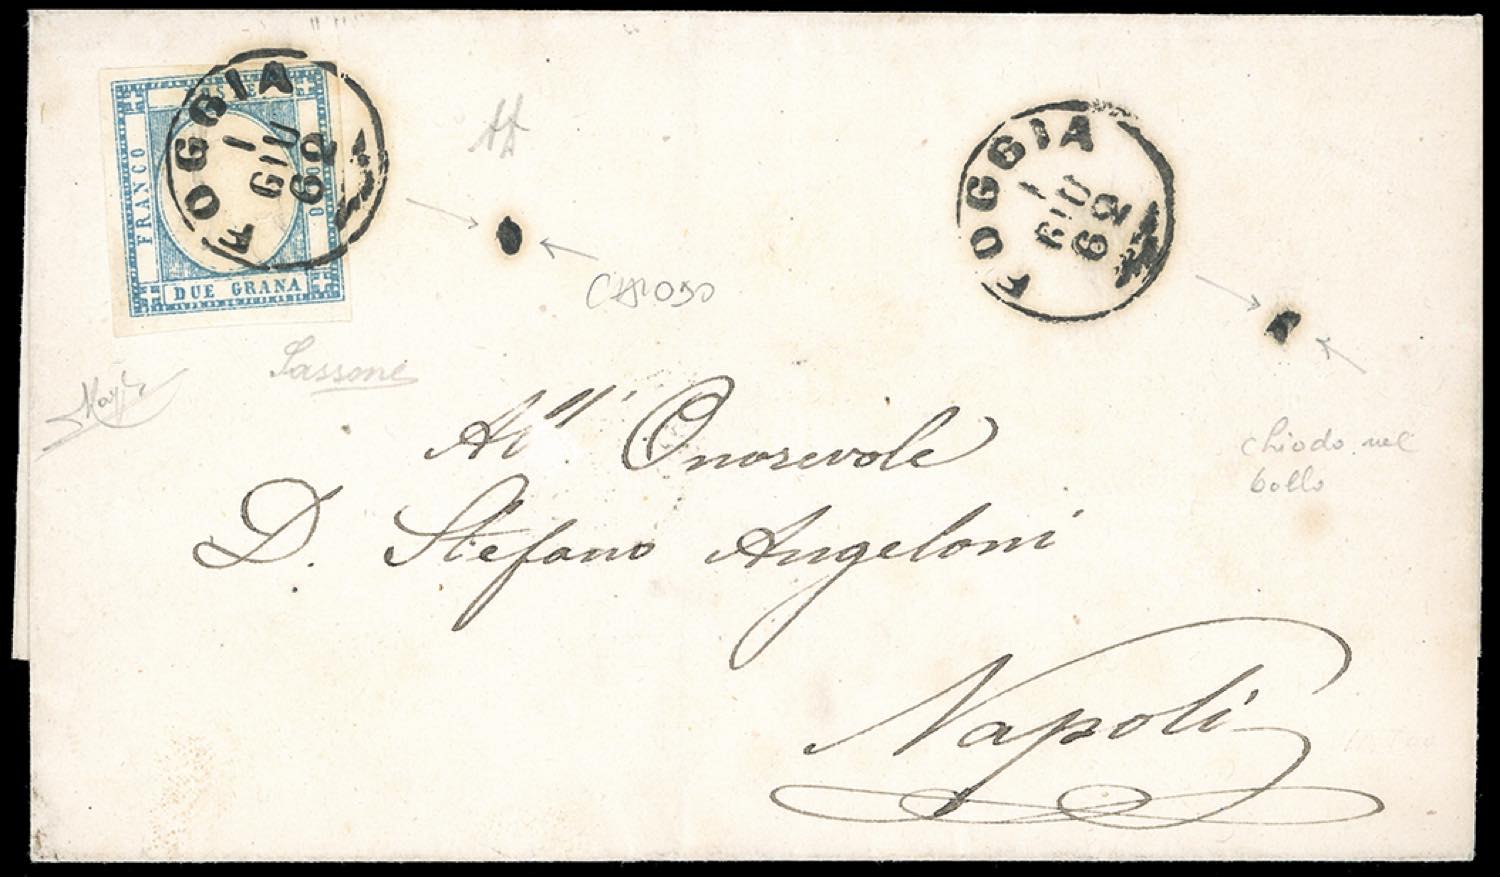 FOGGIA
1
GIU
62
FRANCO
DUE GRANA
FOGGIA
1
GIU
62
CHIODO
Sassone
chiodo nel
bollo
All' Onorevole
D. Stefano Angeloni
Napoli